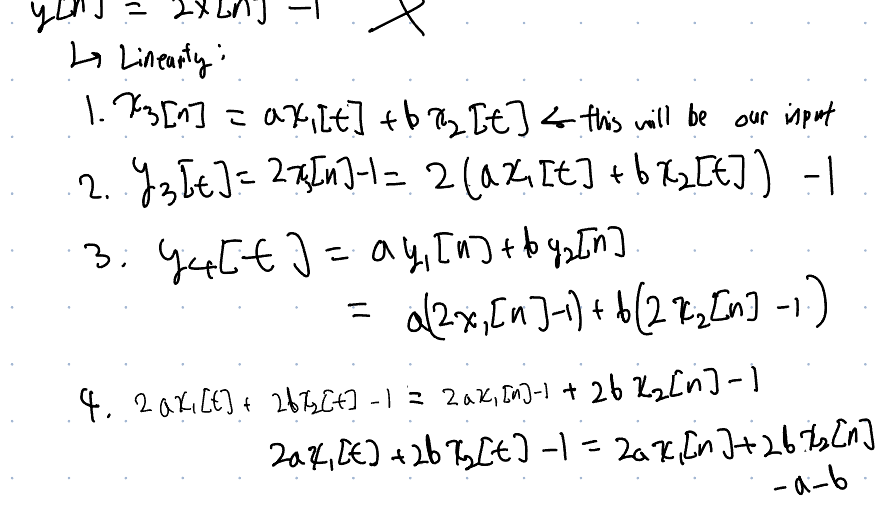 y[n] = 2x[n] -1
↳ Linearty:
1. x₃[n] = ax₁[t] + bx₂[t] ← this will be our input
2. y₃[t] = 2x₃[n]-1 = 2(ax₁[t] + bx₂[t]) -1
3. y₄[t] = ay₁[n] + by₂[n]
= a(2x₁[n]-1) + b(2x₂[n] -1)
4. 2ax₁[t] + 2bx₂[t] -1 = 2ax₁[n]-1 + 2bx₂[n] -1
2ax₁[t] + 2bx₂[t] -1 = 2ax₁[n] + 2bx₂[n]
-a-b